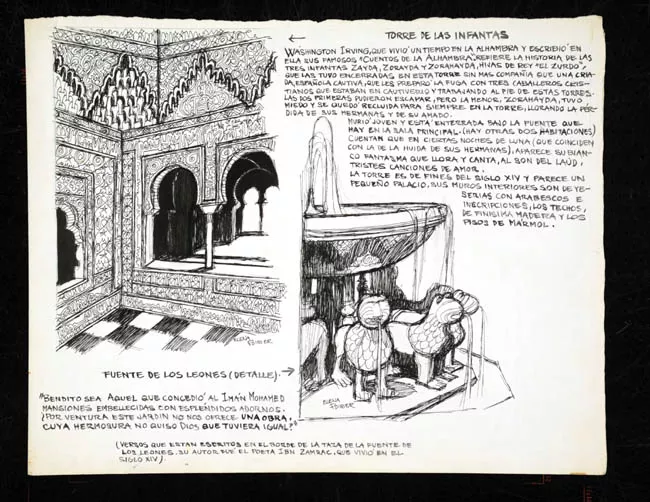 TORRE DE LAS INFANTAS
WASHINGTON IRVING, QUE VIVIÓ UN TIEMPO EN LA ALHAMBRA Y ESCRIBIÓ EN
ELLA SUS FAMOSOS "CUENTOS DE LA ALHAMBRA", REFIERE LA HISTORIA DE LAS
TRES INFANTAS ZAYDA, ZORAYDA Y ZORAHAYDA, HIJAS DE REY "EL ZURDO",
QUE LAS TUVO ENCERRADAS EN ESTA TORRE SIN MAS COMPAÑIA QUE UNA CRIA-
DA, ESPAÑOLA CAUTIVA, QUE LES PREPARÓ LA FUGA CON TRES CABALLEROS CRIS-
TIANOS QUE ESTABAN EN CAUTIVERIO Y TRABAJANDO AL PIE DE ESTAS TORRES.
LAS DOS PRIMERAS PUDIERON ESCAPAR, PERO LA MENOR, ZORAHAYDA, TUVO
MIEDO Y SE QUEDÓ RECLUIDA PARA SIEMPRE EN LA TORRE, LLORANDO LA PÉR-
DIDA DE SUS HERMANAS Y DE SU AMADO.
MURIÓ JOVEN Y ESTÁ ENTERRADA BAJO LA FUENTE QUE
HAY EN LA SALA PRINCIPAL. (HAY OTRAS DOS HABITACIONES)
CUENTAN QUE EN CIERTAS NOCHES DE LUNA (QUE COINCIDEN
CON LA DE LA HUIDA DE SUS HERMANAS), APARECE SU BLAN-
CO FANTASMA QUE LLORA Y CANTA, AL SON DEL LAÚD,
TRISTES CANCIONES DE AMOR.
LA TORRE ES DE FINES DEL SIGLO XIV Y PARECE UN
PEQUEÑO PALACIO, SUS MUROS INTERIORES SON DE YE-
SERIAS CON ARABESCOS E
INSCRIPCIONES, LOS TECHOS,
DE FINISIMA MADERA Y LOS
PISOS DE MÁRMOL.
ELENA
FUENTE DE LOS LEONES (DETALLE)
ELENA
"BENDITO SEA AQUEL QUE CONCEDIÓ AL IMÁN MOHAMED
MANSIONES EMBELLECIDAS CON ESPLÉNDIDOS ADORNOS.
¿POR VENTURA ESTE JARDIN NO NOS OFRECE UNA OBRA,
CUYA HERMOSURA NO QUISO DIOS QUE TUVIERA IGUAL?"
(VERSOS QUE ESTAN ESCRITOS EN EL BORDE DE LA TAZA DE LA FUENTE DE
LOS LEONES. SU AUTOR FUÉ EL POETA IBN ZAMRAC, QUE VIVIÓ EN EL
SIGLO XIV)